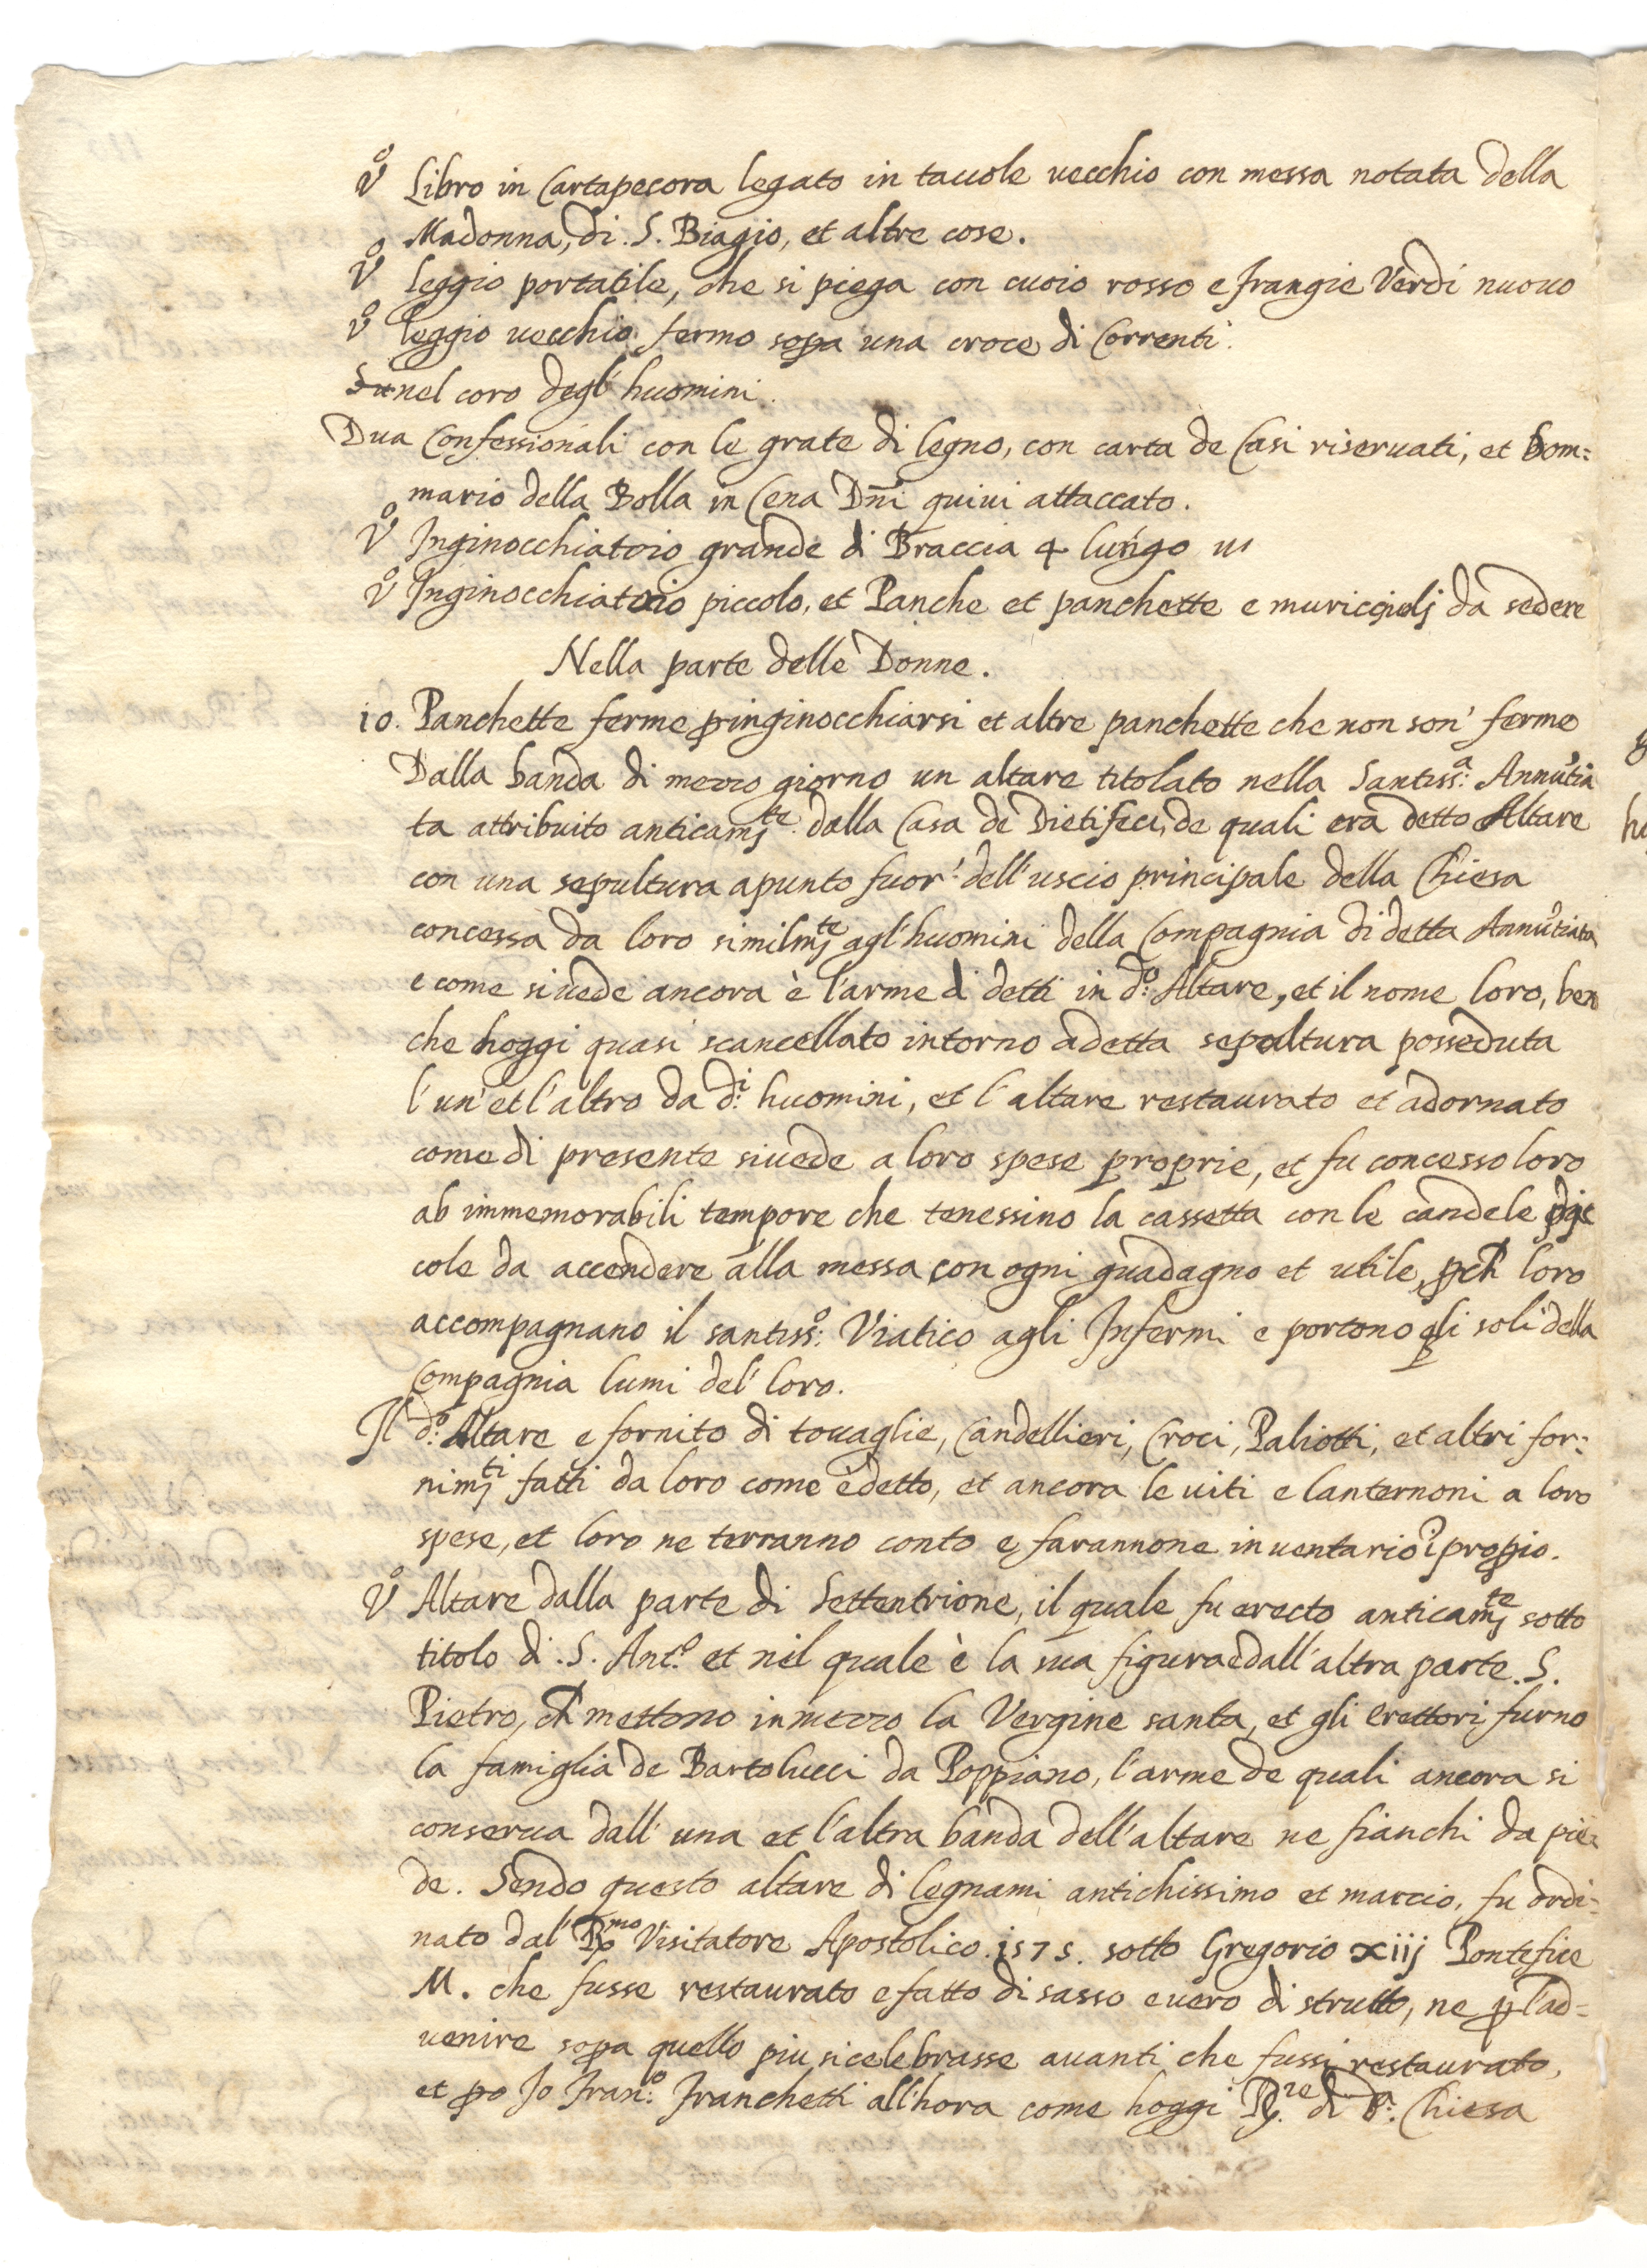 Vº Libro in Cartapecora legato in tauole uecchio con messa notata della
Madonna, di .S. Biagio, et altre cose.
Vº leggio portatile, che si piega con cuoio rosso e frangie Verdi nuouo
Vº leggio uecchio fermo sopa una croce di Correnti.
nel coro degl' huomini.
Dua Confessionali con le grate di legno, con carta de Casi riseruati, et som:
mario della Bolla in Cena Dñi quiui attaccato.
Vº Inginocchiatoio grande di Braccia 4 lungo
Vº Inginocchiatoio piccolo, et Panche et panchette e muricciuolj da sedere
Nella parte delle Donne.
10. Panchette ferme p inginocchiarsi et altre panchette che non son' ferme
Dalla banda di mezzo giorno un altare titolato nella Santiss:ª Annũtia
ta attribuito anticamte. dalla Casa de Dietifeci, de quali era detto Altare
con una sepultura apunto fuor' dell'uscio principale della Chiesa
concessa da loro similmte agl'huomini della Compagnia di detta Annũtiata
e come si uede ancora è l'arme di detti in d:º Altare, et il nome loro, ben
che hoggi quasi scancellato intorno a detta sepoltura posseduta
l'un' et l'altro da d:i huomini, et l'altare restaurato et adornato
come di presente si uede a loro spese proprie, et fu concesso loro
ab immemorabili tempore che tenessino la cassetta con le candele pic
cole da accendere alla messa con ogni guadagno et utile, pch loro
accompagnano il santiss:º Viatico agli Infermi e portono gli soli della
Compagnia lumi del' loro.
Il d:º Altare e fornito di touaglie, Candellieri, Croci, Paliotti, et altri for:
nimti fatti da loro come è detto, et ancora le uiti e lanternoni a loro
spese, et loro ne terranno conto e farannone inuentario ĩ propio.
Vº Altare dalla parte di Settentrione, il quale fu erecto anticamte sotto
titolo di .S. Ant.º et nel quale è la sua figura e dall'altra parte .S.
Pietro, ch mettono in mezzo la Vergine santa, et gli Erettori furno
la famiglia de Bartolucci da Poppiano, l'arme de quali ancora si
conserua dall' una et l'altra banda dell'altare ne fianchi da pie
de. Sendo questo altare di legnami antichissimo et marcio, fu ordi-
nato dal Rmo Visitatore Apostolico. 1575. sotto Gregorio xiij Pontefice
M. che fusse restaurato e fatto di sasso e uero distrutto, ne p l'ad=
uenire sopa quello piu si celebrasse auanti che fussi restaurato,
et po Io Fran:º Franchetti all'hora come hoggi Rre di d:ª Chiesa